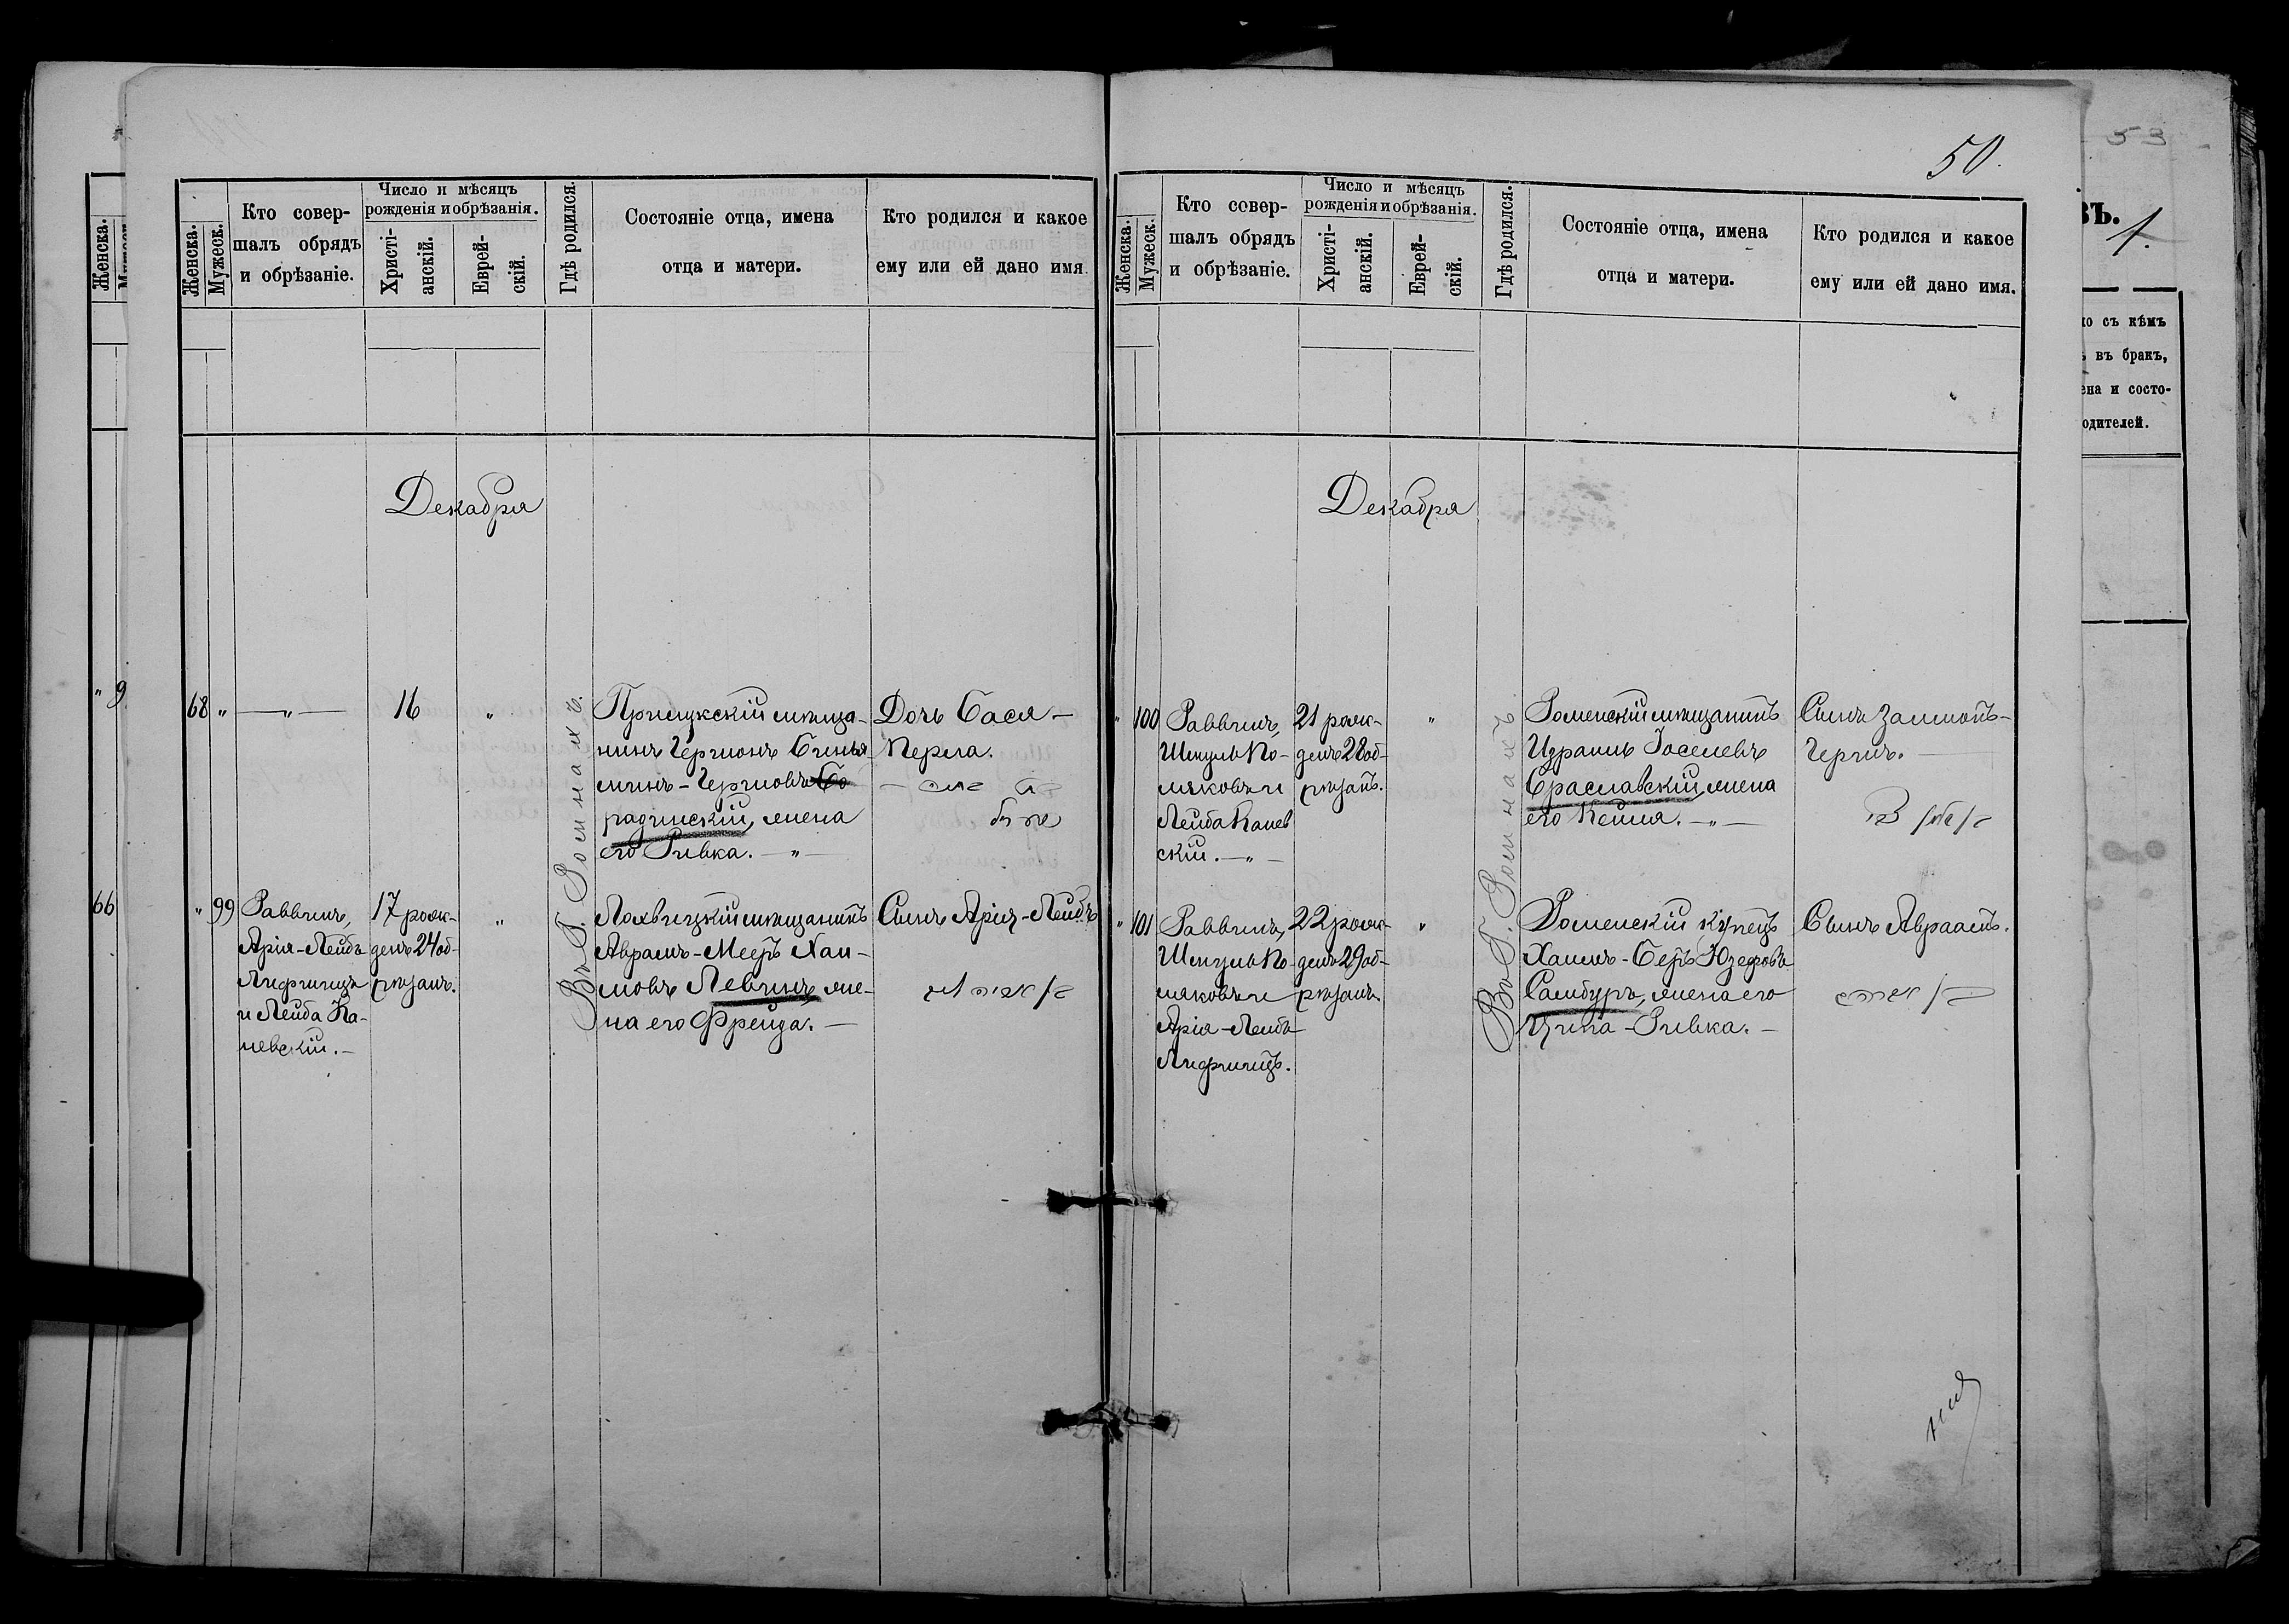 50.
53
Женска.
Мужеск.
Кто совер-
шалъ обрядъ
и обрѣзаніе.
Число и мѣсяцъ
рожденія и обрѣзанія.
Христі-
анскій.
Еврей-
скій.
Гдѣ родился.
Состояніе отца, имена
отца и матери.
Кто родился и какое
ему или ей дано имя
Декабря
68 " — " — 16 "
Въ Г. Ромнахъ.
Прилукскій мѣща-
нинъ Черионъ Бинья-
минъ-
радинскій, жена
его Ривка. — " —
Дочь Бася —
Перла.
" 99
Раввинъ,
Арія-Лейбъ
Лифшицъ
и Лейба Ка-
невскій. —
17 рож-
денъ 24 об-
рѣзанъ.
"
Лохвицкій мѣщанинъ
Аврамъ-Мееръ Хаи-
мовъ Левинъ, же-
на его Фрейда. —
Сынъ Арія-Лейбъ
Женска.
Мужеск.
Кто совер-
шалъ обрядъ
и обрѣзаніе.
Число и мѣсяцъ
рожденія и обрѣзанія.
Христі-
анскій.
Еврей-
скій.
Гдѣ родился.
Состояніе отца, имена
отца и матери.
Кто родился и какое
ему или ей дано имя.
Декабря
" 100
Раввинъ,
и
Лейба Канев
скій. — " —
21 рож-
денъ 28 об-
рѣзанъ.
"
Въ Г. Ромнахъ.
Роменскій мѣщанинъ
Израиль Іоселевъ
Браславскій, жена
его Кейля. — " —
Сынъ Залмонъ-
" 101
Раввинъ,
и
Арія-Лейбъ
Лифшицъ.
22 рож-
денъ 29 об-
рѣзанъ.
"
Роменскій купецъ
Хаимъ-Беръ Юзефовъ
Самбуръ, жена его
Ципа-Ривка. —
Сынъ Авраамъ.
66
въ.
1.
но съ кѣмъ
въ бракъ,
ена и состо-
одителей.